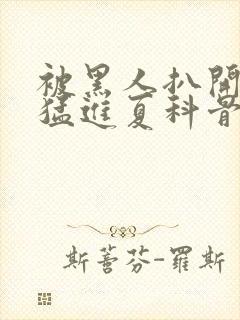 被黑人扒開
猛進夏科骨
斯蓍芬-羅斯